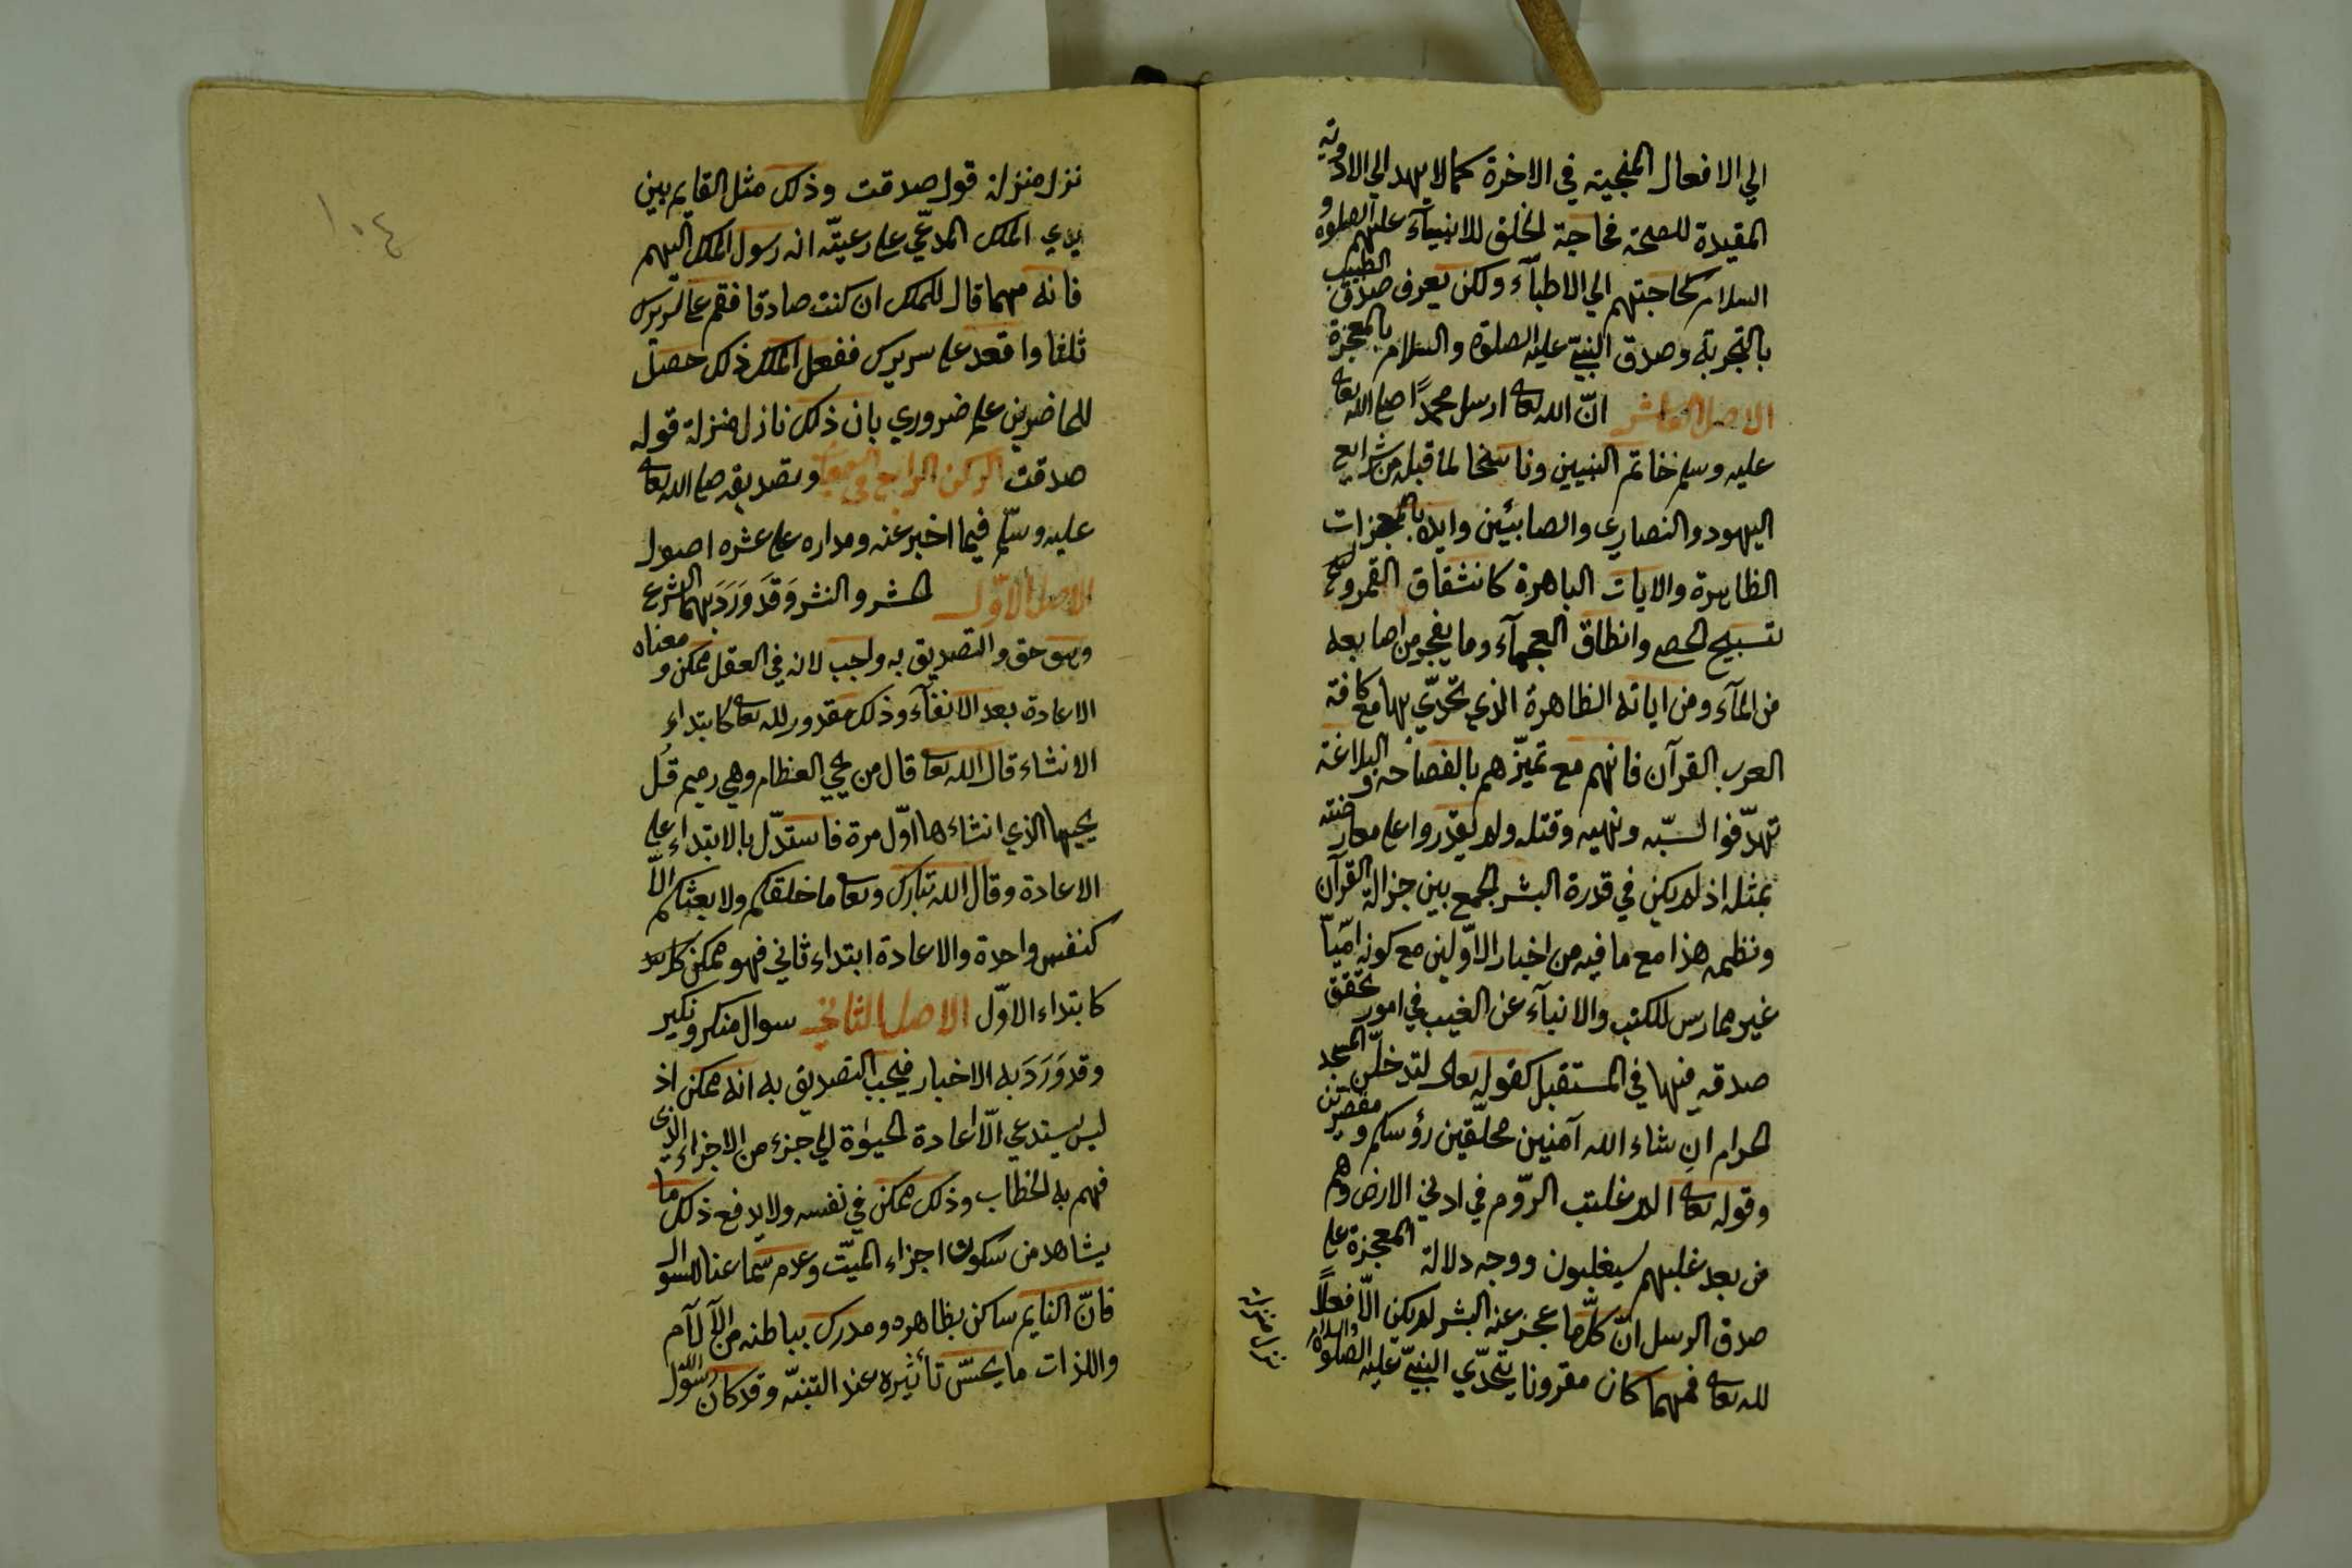 الي الافعال المنجية في الاخرة كما لا يهدي الي الادوية
المفيدة للصحة فحاجة الخلق للانبيآء عليهم الصلوة و
السلام كحاجتهم الي الاطبآء ولكن يعرف صدق الطبيب
بالتجربة وصدق النبيّ عليه الصلوة والسلام بالمعجزة
الاصل العاشر انّ الله تعا ارسل محمدًا صلى الله تعا
عليه وسلم خاتم النبيين وناسخا لما قبله من شرايع
اليهود والنصاري والصابئين وايده بالمعجزات
الظاهرة والايات الباهرة كانشقاق القمر و
تسبيح الحصى وانطاق العجمآء وما يفجر من اصابعه
من المآء ومن اياته الظاهرة الذي تحدّي بها مع كافة
العرب القرآن فانهم مع تميّزهم بالفصاحة والبلاغة
تهدّفوا لسبّه ونهبه وقتله ولم يقدروا على معارضته
بمثله اذ لم يكن في قدرة البشر الجمع بين جزالة القرآن
ونظمه هذا مع ما فيه من اخبار الاوّلين مع كونه اميّاً
غير ممارس للكتب والانبآء عن الغيب في امور تحقق
صدقه فيها في المستقبل كقوله تعالى لتدخلنّ المسجد
الحرام ان شاء الله آمنين محلّقين رؤسكم ومقصرين
وقوله تعا الم غلبت الرّوم في ادني الارض وهم
من بعد غلبهم سيغلبون ووجه دلالة المعجزة على
صدق الرسل انّ كلّما عجز عنه البشر لم يكن الّا فعلاً
لله تعا فمهما كان مقرونا بتحدّي النبيّ عليه الصلوة والسلام
نزل منزلة
نزل منزلة قول صدقت وذلك مثل القايم بين
يدي الملك المدعّي على رعيتّه انه رسول الملك اليهم
فانه مهما قال للملك ان كنت صادقا فقم على سريرك
ثلثا واقعد على سريرك ففعل الملك ذلك حصل
للحاضرين علم ضروري بان ذلك نازل منزلة قوله
صدقت الركن الرابع في السمعيات وتصديقه صلى الله تعا
عليه وسلّم فيما اخبر عنه ومداره على عشره اصول
الاصل الاوّل الحشر والنشر وَقَد وَرَدَ بهما الشرع
وهو حق والتصديق به واجب لانه في العقل ممكن ومعناه
الاعادة بعد الافنآء وذلك مقدور لله تعا كابتداء
الانشاء قال الله تعا قال من يحيي العظام وهي رميم قُل
يحييها الذي انشاءها اوّل مرة فاستدّل بالابتداء على
الاعادة وقال الله تبارك وتعا ما خلقكم ولا بعثكم الّا
كنفس واحدة والاعادة ابتداء ثاني فهو ممكن
كابتداء الاوّل الاصل الثاني سوال منكر ونكير
وقد وَرَدَ به الاخبار فيجب التصديق به انه ممكن اذ
ليس يستدعي الّا اعادة الحيوٰة الي جزء من الاجزاء الذى
فهم به الخطاب وذلك ممكن في نفسه ولا يدفع ذلك ما
يشاهد من سكون اجزاء الميّت وعدم سماعنا للسوال
فانّ النايم ساكن بظاهره ومدرك بباطنه من الآلآم
واللذات ما يحسّ تأثيره عند التنبّه وقد كان رسول الله